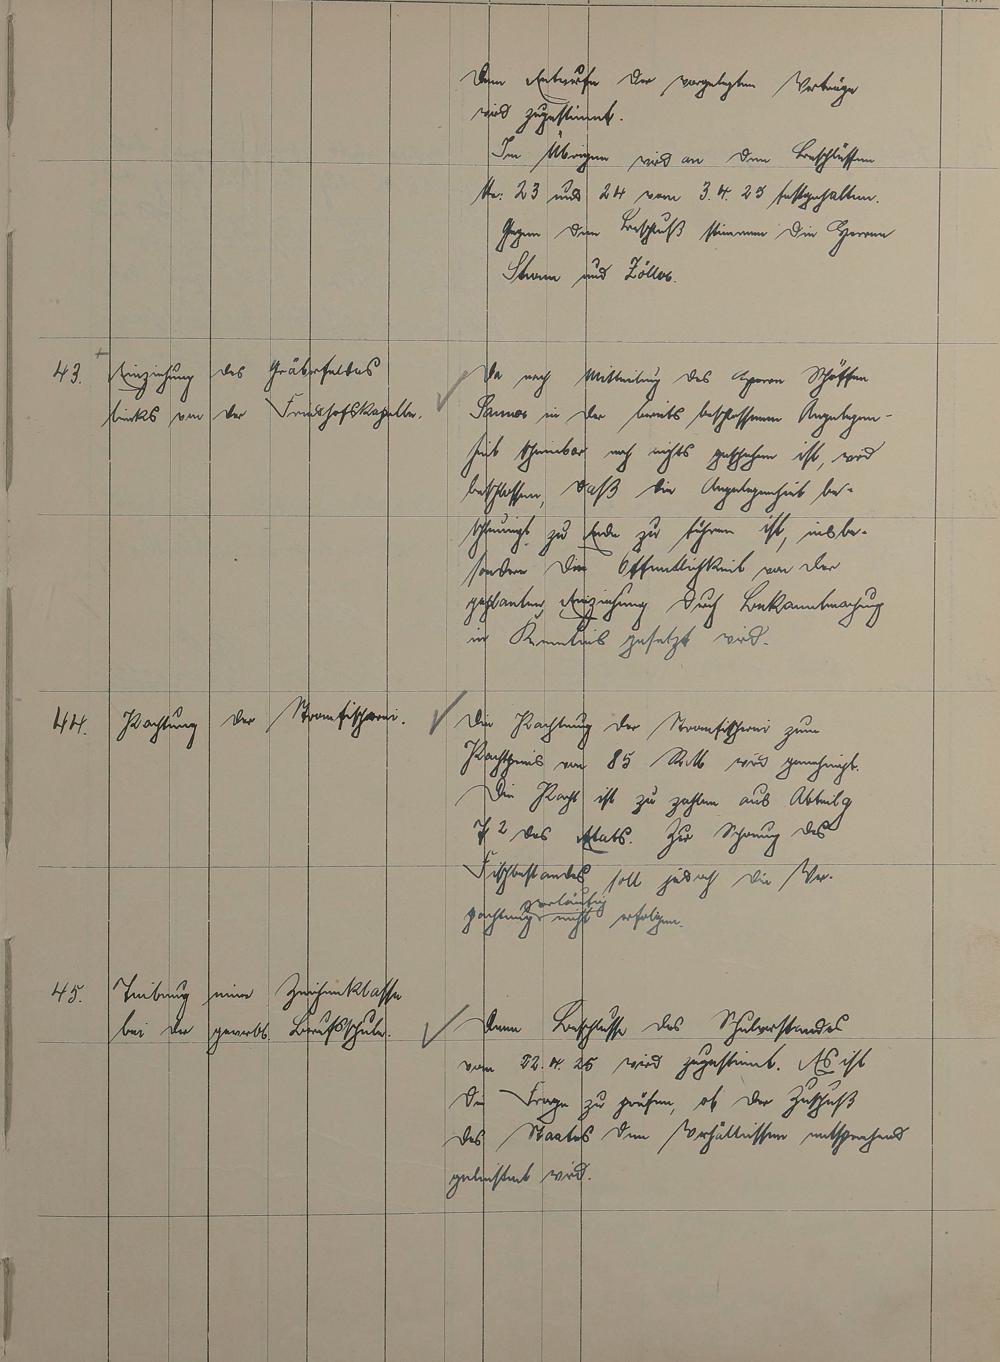 Dem Entwurfe der vorgelegten Verträge
wird zugestimmt.
Im Übrigen wird an den Beschlüssen
Nr: 23 und 24 vom 3.4.25 festgehalten.
Gegen den Beschluß stimmen die Herren
und Zöller.
43. Einziehung des Gräberfeldes
links von der Friedhofskapelle.
Da nach Mitteilung des Herrn Schöffen
in der bereits beschlossenen Angelegen-
heit scheinbar noch nichts geschehen ist, wird
beschlossen, daß die Angelegenheit be-
schleunigt zu Ende zu führen ist, insbe-
sondere die Öffentlichkeit von der
geplanten Einziehung durch Bekanntmachung
in Kenntnis gesetzt wird.
44. Pachtung der Stromfischerei.
Die Pachtung der Stromfischerei zum
Pachtpreis von 85 RM wird genehmigt.
Die Pacht ist zu zahlen aus Abteilg
2 des Etats. Zur Schonung des
Fischbestandes soll jedoch die Ver-
pachtung vorläufig nicht erfolgen.
45. Teilung einer Zeichenklasse
bei der gewerbl. Berufsschule.
Dem Beschlusse des Schulvorstandes
vom 22.4.25 wird zugestimmt. Es ist
die Frage zu prüfen, ob der Zuschuß
des Staates den Verhältnissen entsprechend
geleistet wird.